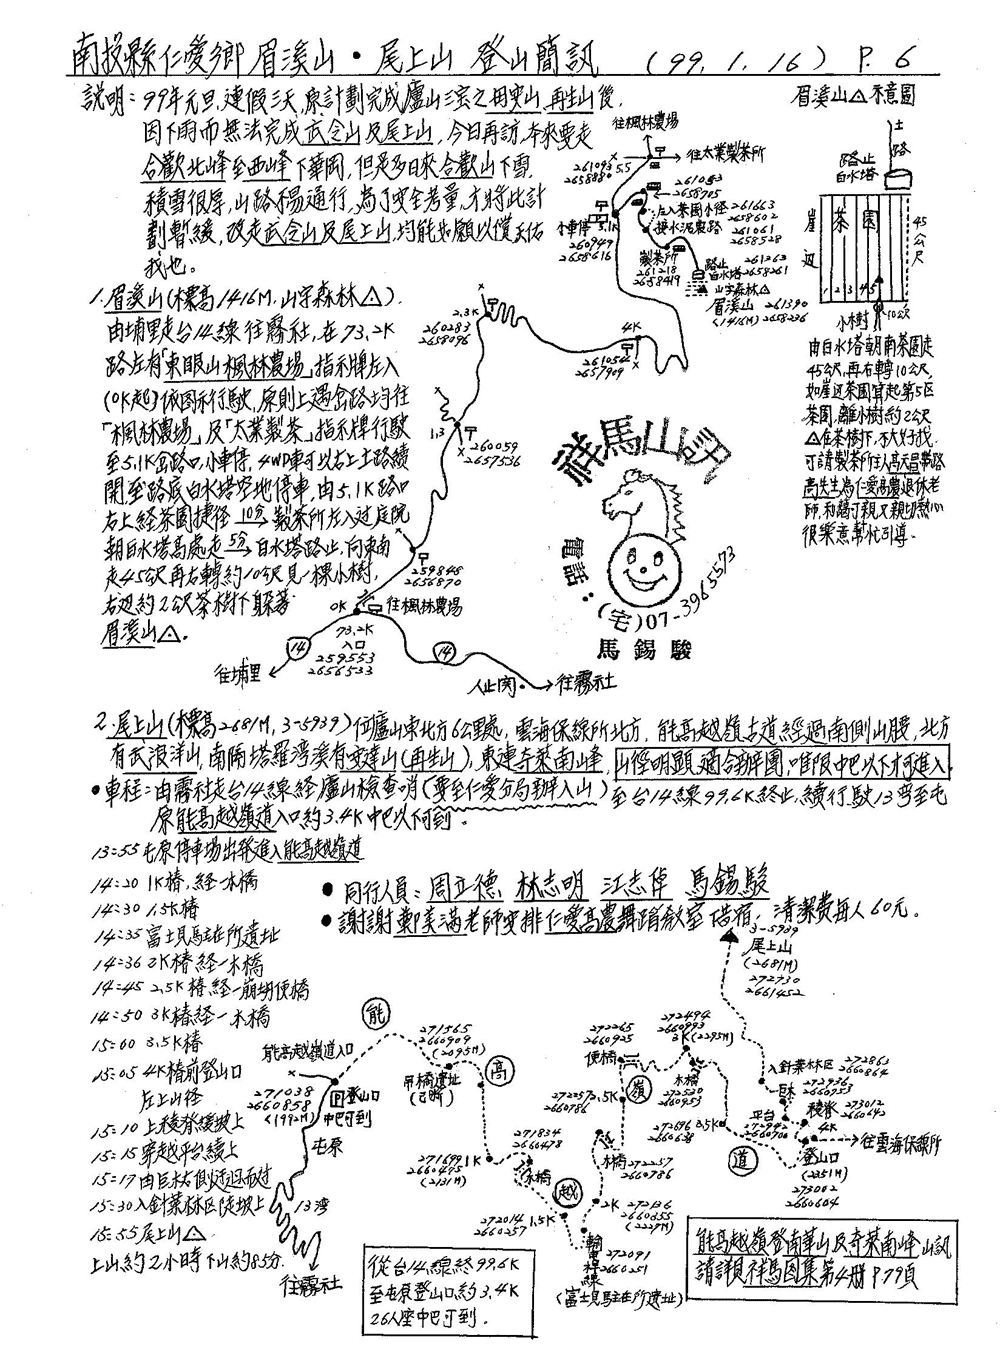 南投縣仁愛鄉眉溪山·尾上山 登山簡訊 (99.1.16) P.6
說明：99年元旦，連假三天，原計劃完成廬山三雲之母安山、再生山後，
因下雨而無法完成武令山及尾上山，今日再訪，本來要走
合歡北峰至西峰下華岡，但是多日來合歡山下雪，
積雪很厚，山路不易通行，為了安全考量，才將此計
劃暫緩，改走武令山及尾上山，均能如願以償，天佑
我也。
1. 眉溪山(標高1416M，山字森林△)．
由埔里走台14線往霧社，在73.2K
路左有「東眼山楓林農場」指示牌左入
(0K起)依圖示行駛，原則上遇岔路均往
「楓林農場」及「太業製茶」指示牌行駛
至5.1K岔路口，小車停，4WD車可以右上土路續
開至路底白水塔空地停車，由5.1K路口
右上経茶園捷径 10分→製茶所左入过庭院
朝白水塔高處走 5分→白水塔路止，向東南
走45公尺再右轉約10公尺見一棵小樹，
右边約2公尺茶樹下躲著
眉溪山△．
往楓林農場
往太業製茶所
261092 5.5
2658880
261053
2658705
左入茶園小径 261663
2658602
接水泥製路 261061
2658528
小車停 5.1K
260949
2658616
製茶所
261218
2658419
路止 261263
白水塔 2658261
山字森林△
眉溪山 261390
(1416M) 2658236
2.3K
260283
2658096
4K
261054
2657909
1.3
260059
2657536
259848
2656870
0K
往楓林農場
73.2K
入口
259553
2656533
14
14
往埔里
人止関
往霧社
眉溪山△示意圖
土
路
路止
白水塔
崖
边
茶園
1 2 3 45
45公尺
10公尺
小樹
由白水塔朝南茶園走
45公尺，再右轉10公尺，
如崖边茶園算起第5区
茶園，離小樹約2公尺
△在茶樹下，不太好找，
可請製茶所主人高天昌帶路
高先生為仁愛高農退休老
師，和藹可親又親切熱心
很樂意幫忙引導．
祥馬山訊
電話：(宅)07-3965573
馬錫駿
2. 尾上山(標高2681M，3-5939)位廬山東北方6公里處，雲海保線所北方，能高越嶺古道經過南側山腰，北方
有武浪洋山，南隔塔羅灣溪有安達山(再生山)，東連奇萊南山峰，山徑明顯，適合辦團，唯限中巴以下才可進入．
●車程：由霧社走台14線経廬山檢查哨(要至仁愛分局辦入山)至台14線99.6K終止，續行駛13弯至屯
原能高越嶺道入口約3.4K中巴以下可到．
13:55 屯原停車場出発進入能高越嶺道
14:20 1K樁，経一木橋
14:30 1.5K樁
14:35 富士見馬主在所遺址
14:36 2K樁経一木橋
14:45 2.5K樁，経一崩坍便橋
14:50 3K樁経一木橋
15:00 3.5K樁
15:05 4K樁前登山口
左上山径
15:10 上稜脊緩坡上
15:15 穿越平台續上
15:17 由巨木右側迂迴而过
15:30 入針葉林区陡坡上
15:55 尾上山△
上山約2小時下山約85分．
●同行人員：周立德 林志明 江志偉 馬錫駿
●謝謝鄭美滿老師安排仁愛高農舞蹈教室借宿，清潔費每人60元。
3-5939
尾上山
(2681M)
272730
2661452
能高越嶺道入口
271038
2660858
(1992M)
登山口
中巴可到
屯原
13湾
往霧社
能
271565
2660909
(2095M)
吊橋遺址
(已毀)
高
271699 1K
2660475
(2131M)
271834
2660478
木橋
272014 1.5K
2660257
越
輸電桿線
272091
2660251
(富士見馬主在所遺址)
2K 272136
2660355
(2227M)
木橋 272257
2660786
272057 2.5K
2660786
272265
2660925
便橋
嶺
272494
2660993
3K (2295M)
木橋
272520
2660953
272696 3.5K
2660628
道
入針葉林区 272863
2660864
272936
2660753
巨木
平台
272942
2660700
稜脊 273012
2660642
4K
往雲海保線所
登山口
(2351M)
273002
2660604
從台14線終99.6K
至屯原登山口約3.4K
26人座中巴可到．
能高越嶺登南華山及奇萊南峰山訊
請詳見祥馬圖集第4冊P79頁